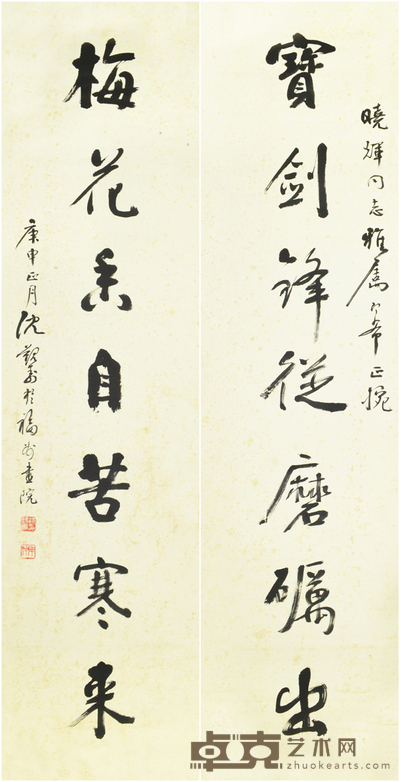 曉輝同志雅屬希正腕
寶劍鋒從磨礪出
梅花香自苦寒来
庚申正月沈覲壽於福州畫院
卓克艺术网
zhuokearts.com